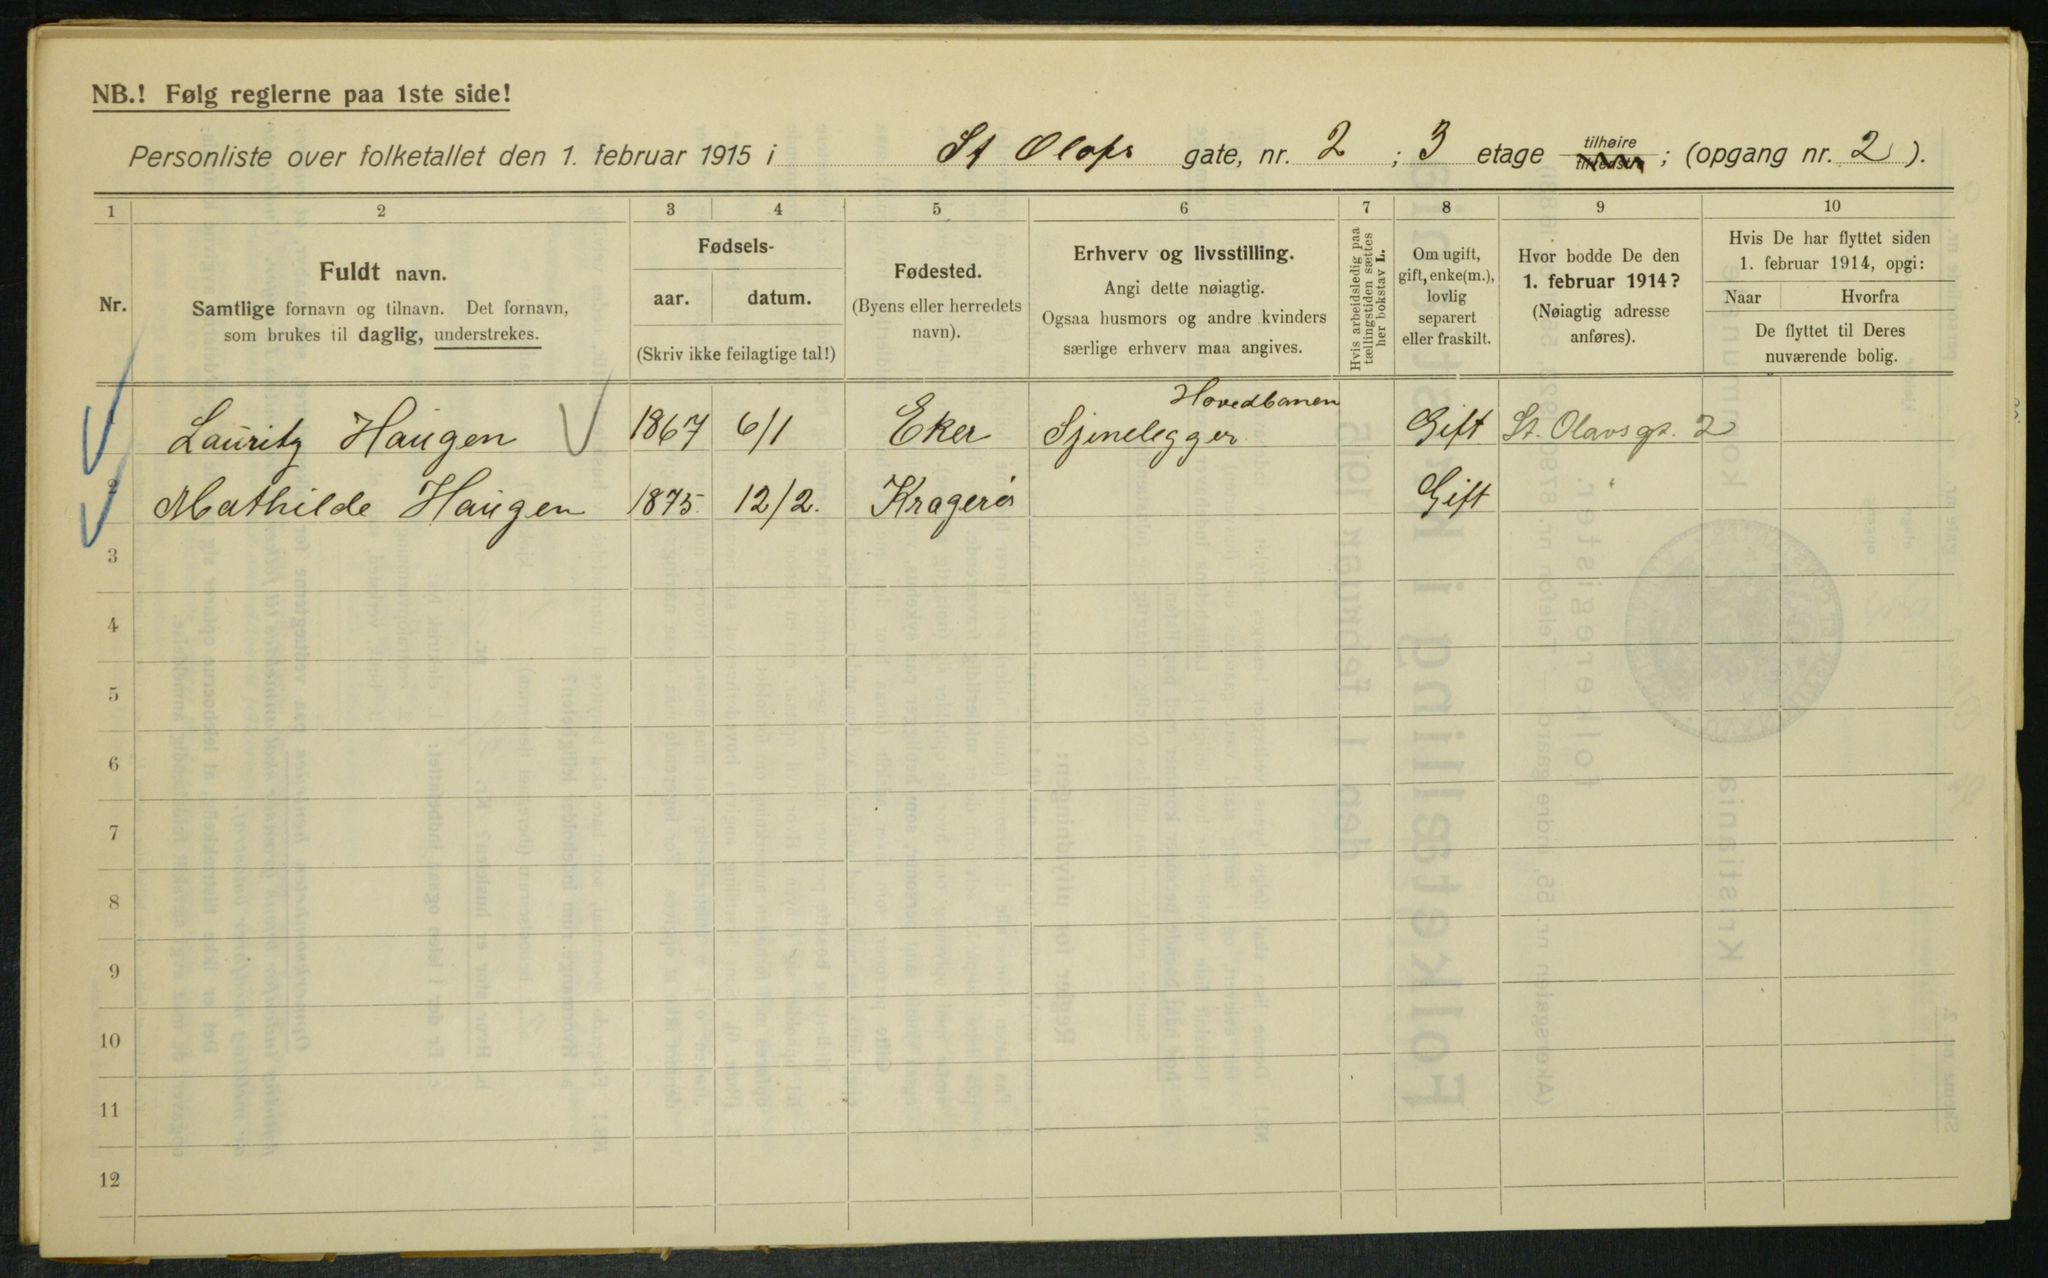 NB.! Følg reglerne paa 1ste side!
Personliste over folketallet den 1. februar 1915 i St Olafs gate, nr. 2 ; 3 etage tilhøire tilvenstre ; (opgang nr. 2 ).
1 2 3 4 5 6 7 8 9 10
Nr.
Fuldt navn.
Samtlige fornavn og tilnavn. Det fornavn,
som brukes til daglig, understrekes.
Fødsels-
aar. datum.
(Skriv ikke feilagtige tal!)
Fødested.
(Byens eller herredets
navn).
Erhverv og livsstilling.
Angi dette nøiagtig.
Ogsaa husmors og andre kvinders
særlige erhverv maa angives.
Hvis arbeidsledig paa
tællingstiden sættes
her bokstav L.
Om ugift,
gift, enke(m.),
lovlig
separert
eller fraskilt.
Hvor bodde De den
1. februar 1914?
(Nøiagtig adresse
anføres).
Hvis De har flyttet siden
1. februar 1914, opgi:
Naar Hvorfra
De flyttet til Deres
nuværende bolig.
Hovedbanen
1 Lauritz Haugen 1867 6/1 Eker Sjinelegger Gift St. Olavsgt. 2
2 Mathilde Haugen 1875. 12/2. Kragerö Gift
3
4
5
6
7
8
9
10
11
12